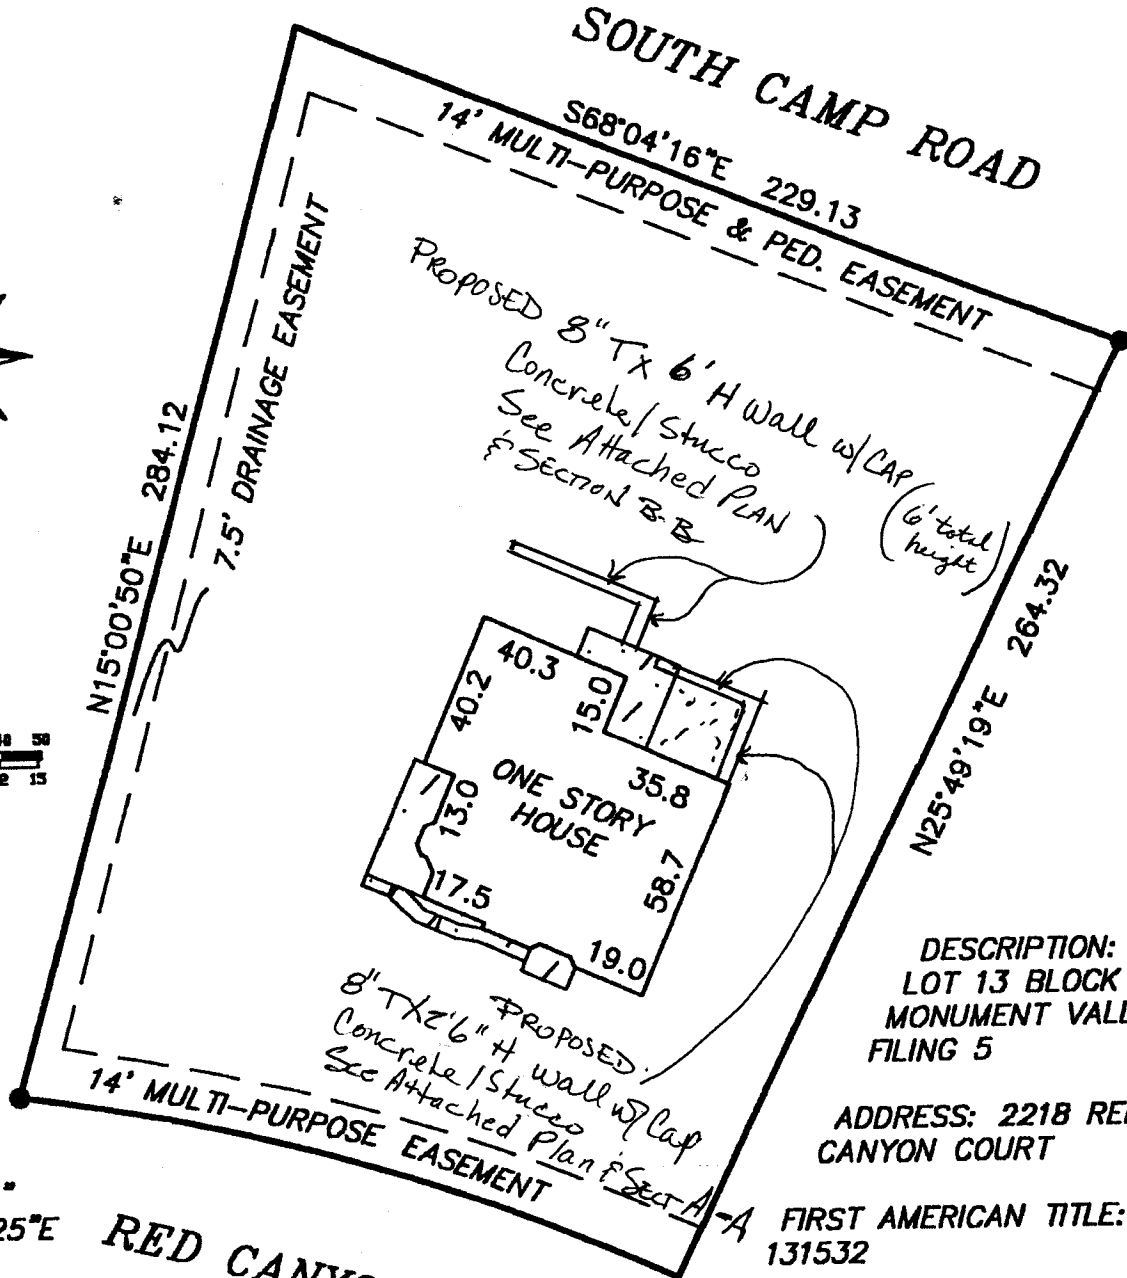 SOUTH CAMP ROAD
S68°04'16"E 229.13
14' MULTI-PURPOSE & PED. EASEMENT
7.5' DRAINAGE EASEMENT
N15°00'50"E 284.12
PROPOSED 8" T x 6' H Wall w/ CAP
Concrete / Stucco
See Attached PLAN
& SECTION B-B
(6' total
height)
N25°49'19"E 264.32
40.3
40.2
15.0
35.8
13.0
ONE STORY
HOUSE
17.5
58.7
19.0
50
15
PROPOSED
8" T X 2'6" H wall w/ Cap
Concrete / Stucco
See Attached Plan & Sect A-A
14' MULTI-PURPOSE EASEMENT
DESCRIPTION:
LOT 13 BLOCK
MONUMENT VALL
FILING 5
ADDRESS: 2218 RED
CANYON COURT
FIRST AMERICAN TITLE:
131532
25"E
RED CANYO